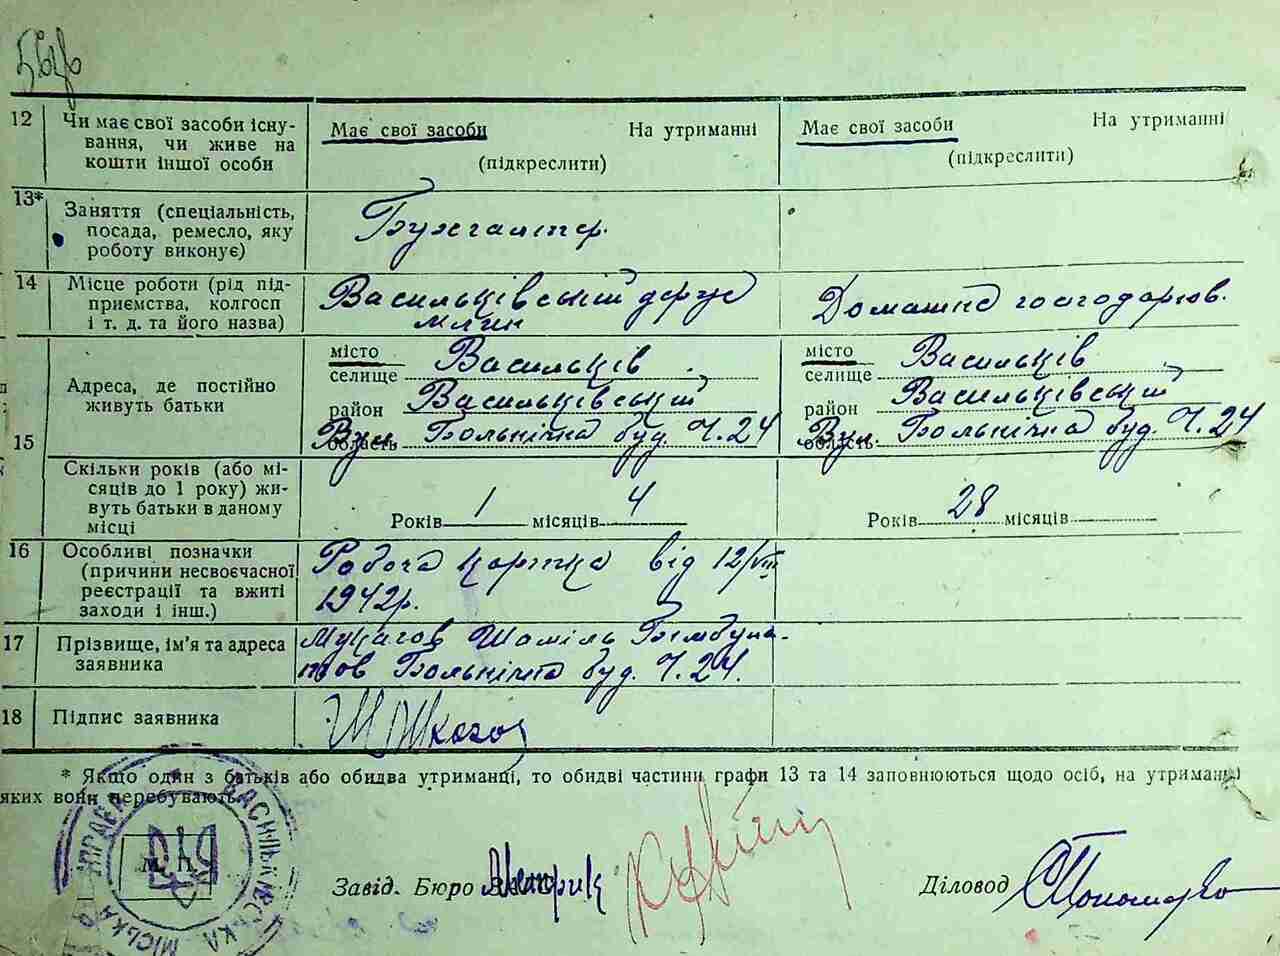 12 Чи має свої засоби існу-
вання, чи живе на
кошти іншої особи
Має свої засоби На утриманні
(підкреслити)
Має свої засоби На утриманні
(підкреслити)
13* Заняття (спеціальність,
посада, ремесло, яку
роботу виконує)
Бухгалтер.
14 Місце роботи (рід під-
приємства, колгосп
і т. д. та його назва)
Васильківський держ
млин
Домашнє господарюв.
15 Адреса, де постійно
живуть батьки
місто Васильків
селище
район Васильківський
область Вул. Больнічна буд. Ч. 24
місто Васильків
селище
район Васильківський
область Вул. Больнічна буд. Ч. 24
Скільки років (або мі-
сяців до 1 року) жи-
вуть батьки в даному
місці
Років 1 місяців 4
Років 28 місяців
16 Особливі позначки
(причини несвоєчасної
реєстрації та вжиті
заходи і інш.)
Робоча картка від 12/VIII
1942р.
17 Прізвище, ім'я та адреса
заявника
Шаміль
Больнічна буд. Ч. 24.
18 Підпис заявника
* Якщо один з батьків або обидва утриманці, то обидві частини графи 13 та 14 заповнюються щодо осіб, на утриманні
яких вони перебувають.
ВАСИЛЬКІВСЬКА МІСЬКА УПРАВА
М. П.
Завід. Бюро
Діловод